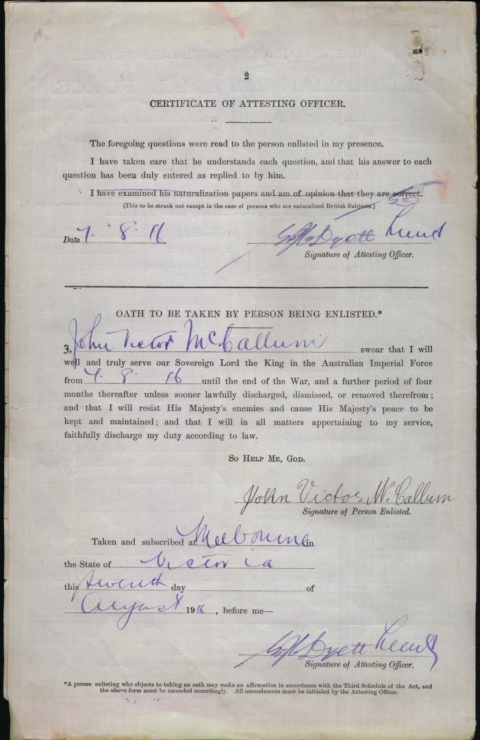 2
CERTIFICATE OF ATTESTING OFFICER.
The foregoing questions were read to the person enlisted in my presence.
I have taken care that he understands each question, and that his answer to each
question has been duly entered as replied to by him.
I have examined his naturalization papers and am of opinion that they are correct.
(This to be struck out except in the case of persons who are naturalised British Subjects.)
Date 7. 8. 16
Dyett Lieut
Signature of Attesting Officer.
OATH TO BE TAKEN BY PERSON BEING ENLISTED.*
3, John Victor McCallum swear that I will
well and truly serve our Sovereign Lord the King in the Australian Imperial Force
from 7. 8. 16 until the end of the War, and a further period of four
months thereafter unless sooner lawfully discharged, dismissed, or removed therefrom ;
and that I will resist His Majesty's enemies and cause His Majesty's peace to be
kept and maintained ; and that I will in all matters appertaining to my service,
faithfully discharge my duty according to law.
So Help Me, God.
John Victor McCallum
Signature of Person Enlisted.
Taken and subscribed at Melbourne in
the State of Victoria
this Seventh day of
August 191 , before me—
Dyett Lieut
Signature of Attesting Officer.
*A person enlisting who objects to taking an oath may make an affirmation in accordance with the Third Schedule of the Act, and
the above form must be amended accordingly. All amendments must be initialed by the Attesting Officer.